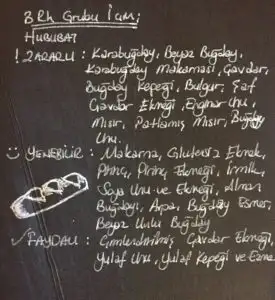 B Rh Grubu İçin;
HUBUBAT
! ZARARLI : Karabuğday, Beyaz Buğday,
Karabuğday Makarnası, Çavdar,
Buğday Kepeği, Bulgur, Saf
Çavdar Ekmeği, Enginar Unu,
Mısır, Patlamış Mısır, Buğday
Unu.
YENEBİLİR : Makarna, Glutensiz Ekmek,
Pirinç, Pirinç Ekmeği, İrmik,
Soya Unu ve Ekmeği, Alman
Buğdayı, Arpa, Buğday Esmer,
Beyaz Unlu Buğday
✓ FAYDALI : Çimlendirilmiş Çavdar Ekmeği,
Yulaf Unu, Yulaf Kepeği ve Ezme